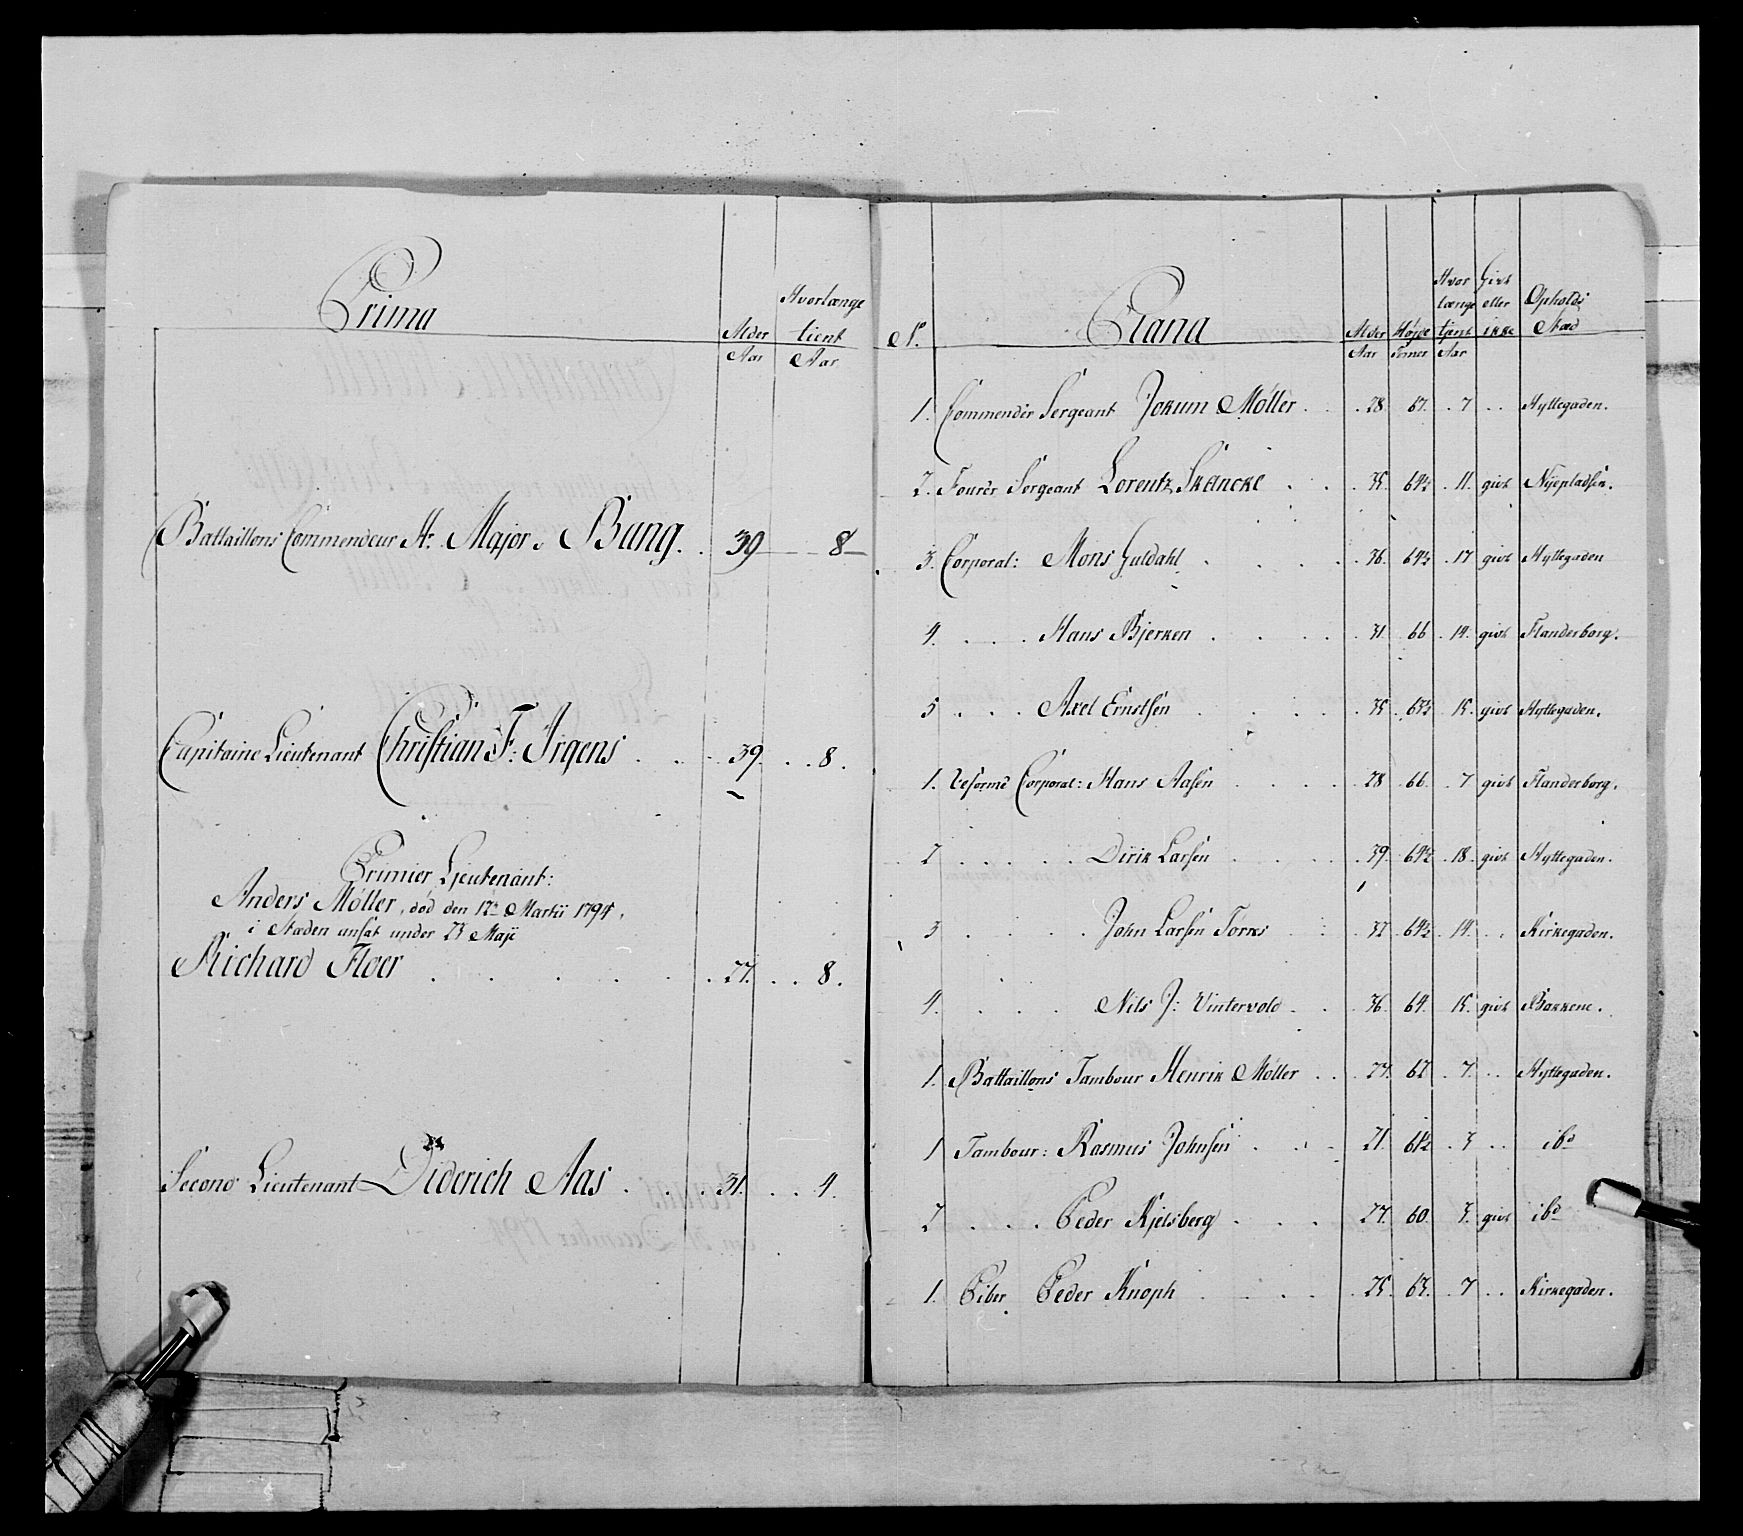 Prima
Alder
Aar
Hvorlænge
tient
Aar
Battaillons Commendeur Hr. Major v Bang . . 39 8
Capitaine Lieutenant Christian F: Irgens . . . 39. . . 8.
Primier Lieutenant:
Anders Møller, død den 17de Martii 1794,
i Steden ansat under 23 Maji
Richard Floer . . . . . 27. . . 8.
Second Lieutenant Diderich Aas . . . 31. . . 4.
No.
Plana
Alder
Aar
Højde
Tomer
Hvor
længe
tjent
Aar
Givt
eller
ikke
Opholds
Sted
1. Commender Sergeant Jokum Møller . . . 28. 67. . 7 . . Hyttegaden.
2. Fourer Sergeant Lorentz Skencke . . . 35. 64½ . 11. givt Nyepladsen.
3. Corporal: Mons Guldahl . . . . 36. 64½ . 17 givt Hyttegaden
4. . . . Hans Bjerken . . . . 31. 66 . 14. givt Flanderborg.
5 . . . Axel Ernstsen . . . . 35 . 63½ . 15. givt Hyttegaden.
1. Reformé Corporal: Hans Aasen . . . . 28 . 66. . 7 givt Flanderborg.
2 . . . . . Dirik Larsen . . . . 39. 64½ . 18. givt Hyttegaden.
3 . . . . John Larsen Tørres . . . 32 . 64½ . 14. . . Kirkegaden.
4. . . . . Nils J: Vintervold . . . 36. 64. . 15. givt Bakkene.
1. Battaillons Tambour Henrik Møller . . . 27. 62 . 7. . . Hyttegaden.
1 Tambour: Rasmus Johnsen . . . 21. 61½ . 3 . . ibd
2 . . . Peder Kjelsberg . . . 27. 60. 3. givt ibd
1. Piber Peder Knoph . . . . 25. 63. . 7 . . Kirkegaden.